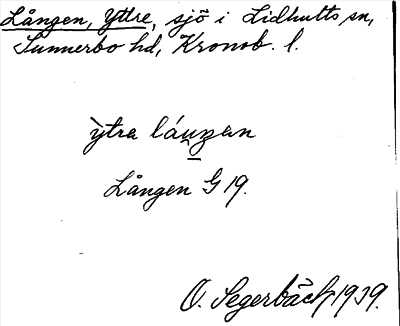 Lången, Yttre, sjö i Lidhults sn,
Sunnerbo hd, Kronob. l.
ỳtre láuŋen
Lången G 19.
O. Segerbäck 1939.